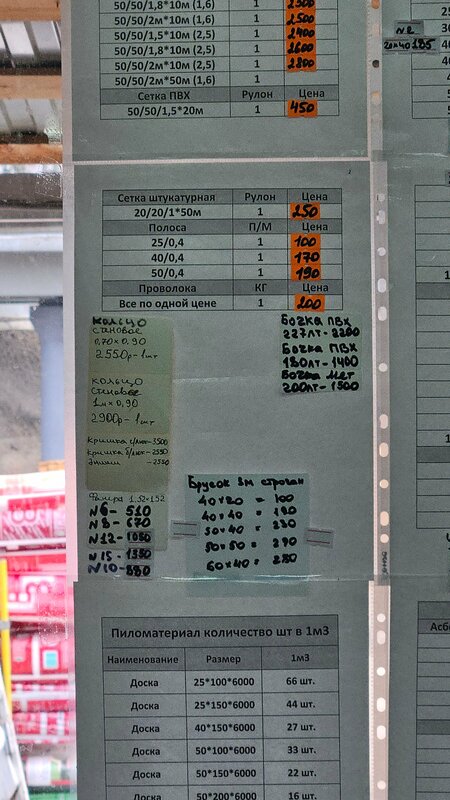 50/50/1,8*10м (1,6) Рулон 1 2300
50/50/2м*10м (1,6) 1 2500
50/50/1,5*10м (2,5) 1 2400
50/50/1,8*10м (2,5) 1 2600
50/50/2м*10м (2,5) 1 2800
50/50/2м*50м (1,6) 1
Сетка ПВХ Рулон Цена
50/50/1,5*20м 1 450
N2
20x40 185
Сетка штукатурная Рулон Цена
20/20/1*50м 1 250
Полоса П/М Цена
25/0,4 1 100
40/0,4 1 170
50/0,4 1 190
Проволока КГ Цена
Все по одной цене 1 200
кольцо
стеновое
0,70x0.90
2550р-1шт
кольцо
стеновое
1мx0,90
2900р-1шт
Крышка с/люк-3500
крышка б/люк-2550
Днищи -2550
Бочка ПВХ
227лт-2200
Бочка ПВХ
180лт-1400
Бочка мет
200лт-1500
Фанера 1.52x1.52
N6- 510
N8- 670
N12-1080
N15-1380
N10-880
Брусок 3м строган
40x20 = 100
40x40 = 180
50x40 = 230
50x50 = 290
60x40 = 280
Пиломатериал количество шт в 1м3
Наименование Размер 1м3
Доска 25*100*6000 66 шт.
Доска 25*150*6000 44 шт.
Доска 40*150*6000 27 шт.
Доска 50*100*6000 33 шт.
Доска 50*150*6000 22 шт.
Доска 50*200*6000 16 шт.